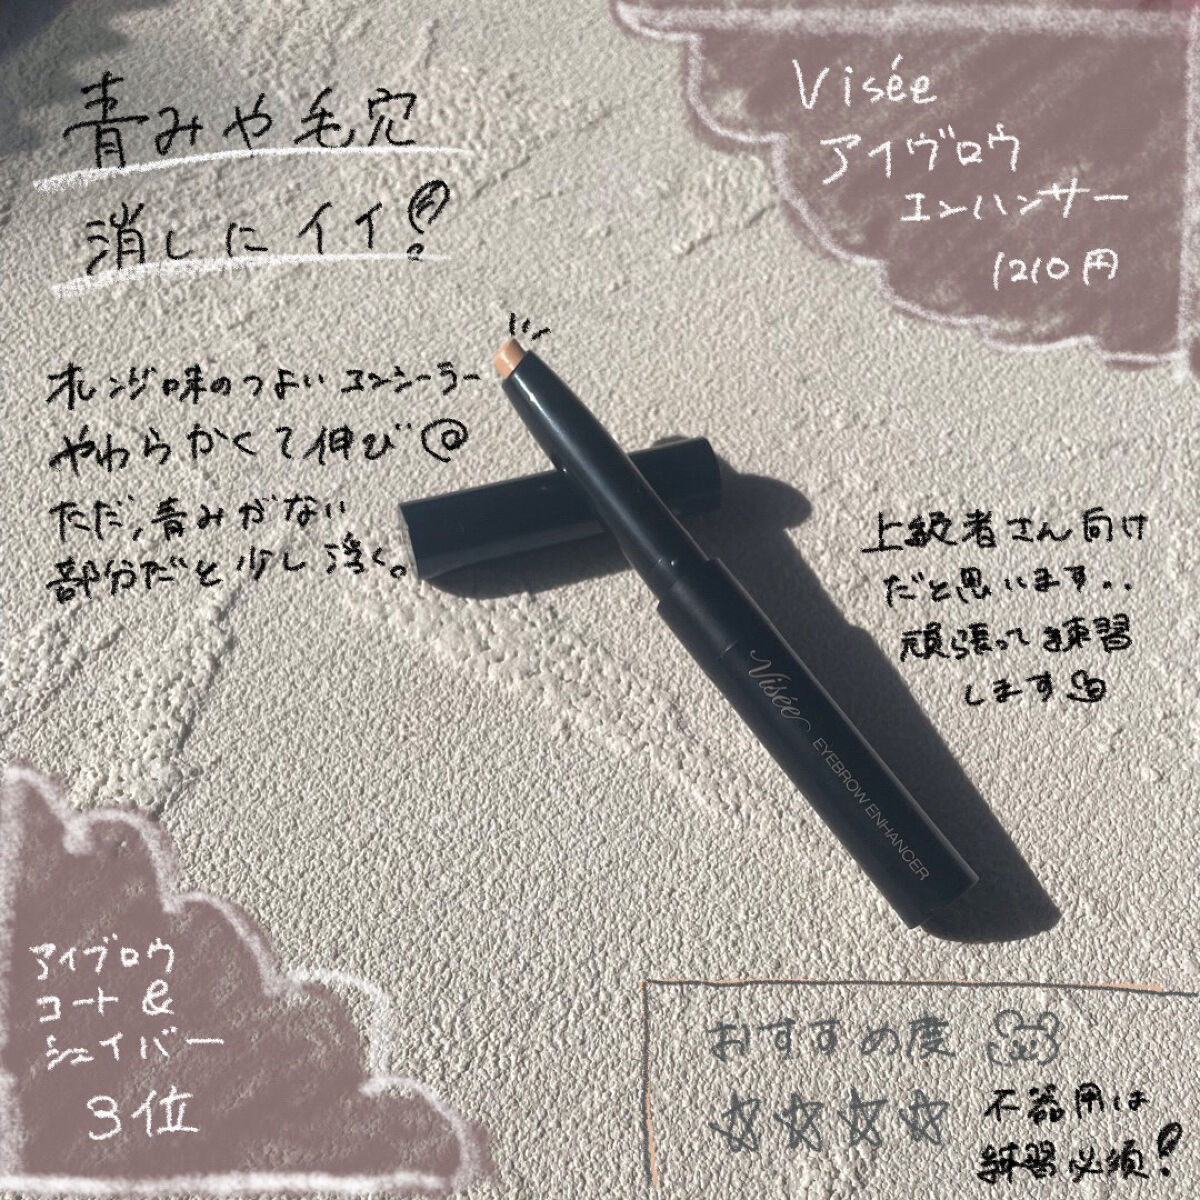 青みや毛穴
消しにイイ!
Visée
アイヴロウ
エンハンサー
1210円
オレンジ味のつよいコンシーラー
やわらかくて伸び@
ただ、青みがない
部分だと少し浮く。
上級者さん向け
だと思います..
頑張って練習
します
Visée
EYEBROW ENHANCER
アイブロウ
コート&
シェイバー
3位
おすすめ度
☆☆☆☆
不器用は
練習必須!